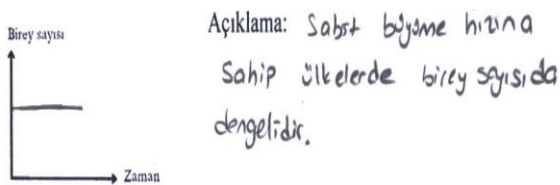 Birey sayısı
Zaman
Açıklama: Sabit büyüme hızına
Sahip ülkelerde birey sayısı da
dengelidir.